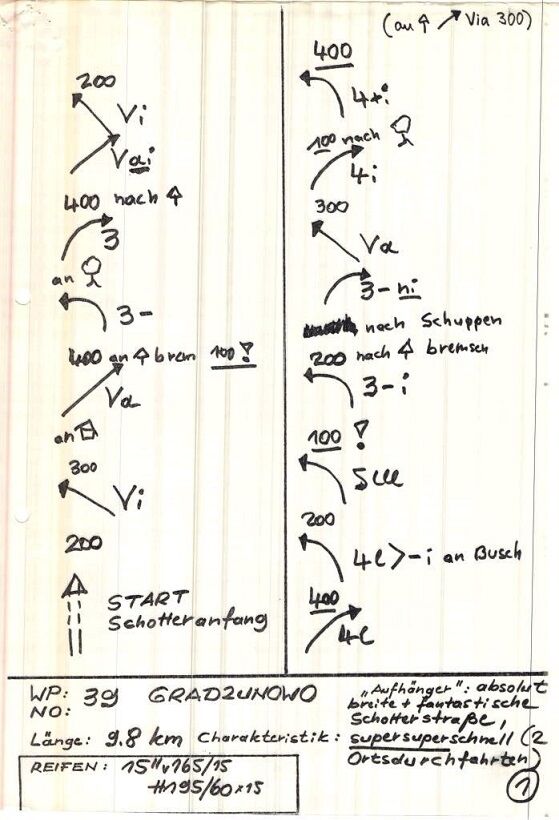 200
Vi
Vai
400 nach
3
an
3-
400 an brem 100!
Va
an
300
Vi
200
START
Schotteranfang
(an Via 300)
400
4+i
100 nach
4i
300
Va
3-ni
nach Schuppen
200 nach bremsen
3-i
100 !
5lll
200
4l>-i an Busch
400
4l
WP: 39 GRADZUNOWO
NO:
Länge: 9.8 km Charakteristik:
„Aufhänger": absolut
breite + fantastische
Schotterstraße,
supersuperschnell (2
Ortsdurchfahrten)
REIFEN: 15"v165/15
H195/60x15
1